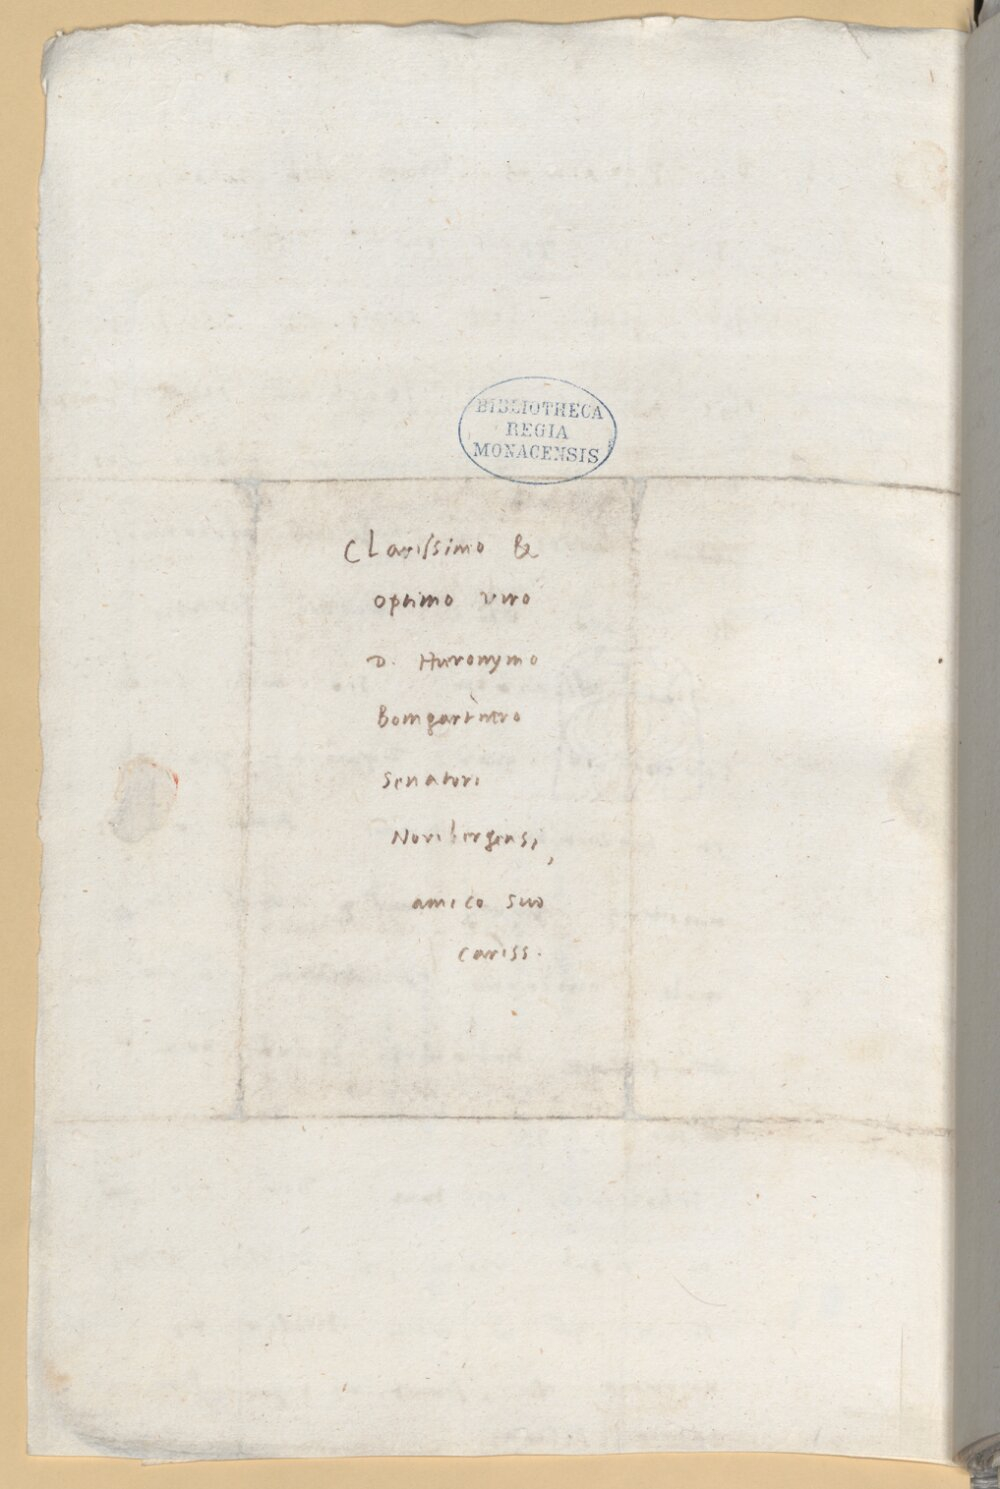 BIBLIOTHECA
REGIA
MONACENSIS
Clarissimo &
optimo viro
D. Hieronymo
Bomgartnero
Senatori
Noribergensi,
amico suo
cariss.